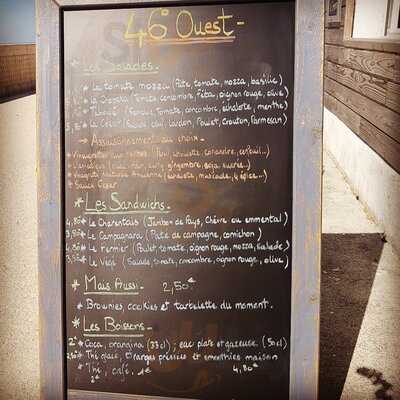 46° Ouest -
* Les Salades -
* La tomate mozza (Pâte, tomate, mozza, basilic)
* La (Tomate, concombre, Féta, oignon rouge, olive)
* Taboulé (Semoule, Tomate, concombre, échalote, menthe)
* La César (Salade, oeuf, lardon, Poulet, Crouton, Parmesan)
→ Assaisonnement au choix -
* Vinaigrette aux herbes (échalote, coriandre, cerfeuil...)
* (gingembre, soja, sucre...)
* Vinaigrette moutarde Ancienne (échalote, muscade, 4 épice...
* Sauce César
* Les Sandwichs -
4,80 * Le Charentais (Jambon de Pays, Chèvre ou emmental)
3,80 * Le Campagnard (Paté de campagne, cornichon)
4,80 * Le Fermier (Poulet, tomate, oignon rouge, mozza, salade)
3,50 * Le Végé (Salade, tomate, concombre, oignon rouge, olive)
* Mais Aussi - 2,50€
* Brownies, cookies et tartelette du moment.
* Les Boissons -
2€ * Coca, orangina (33cl) ; eau plate et gazeuse (50cl)
2,50€ * Thé glacé, oranges pressées et smoothies maison
* Thé, café. 1€ 4,80€
2€